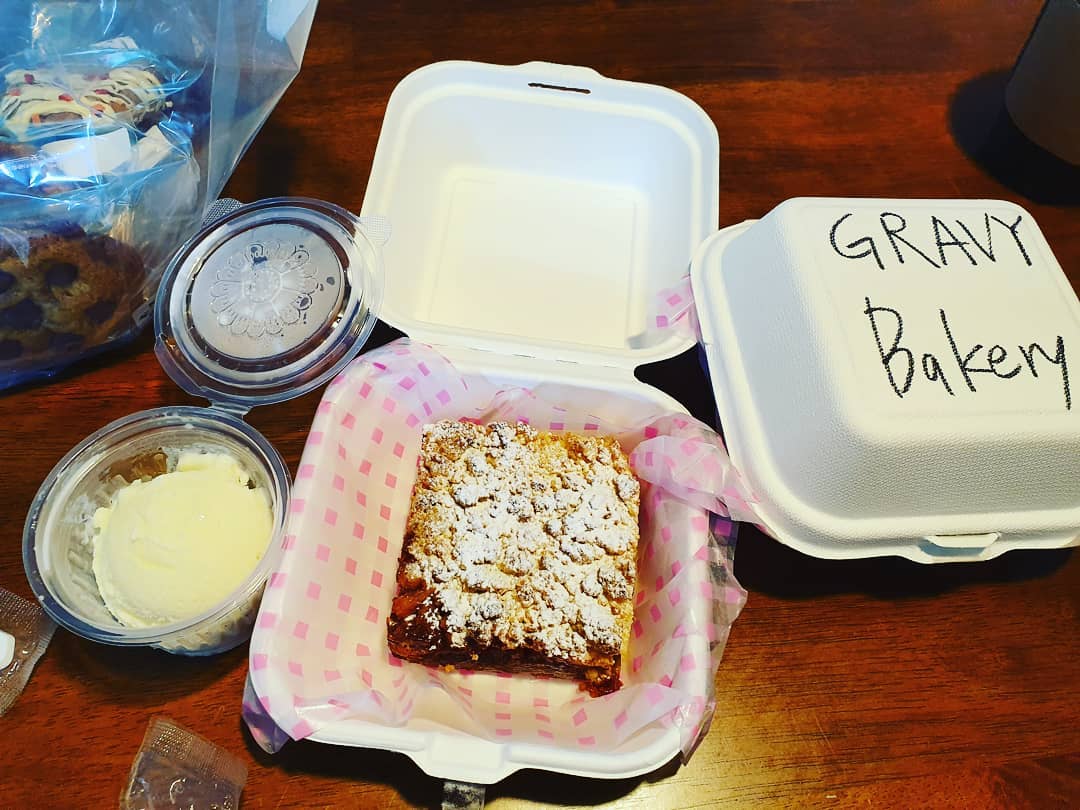 GRAVY
Bakery